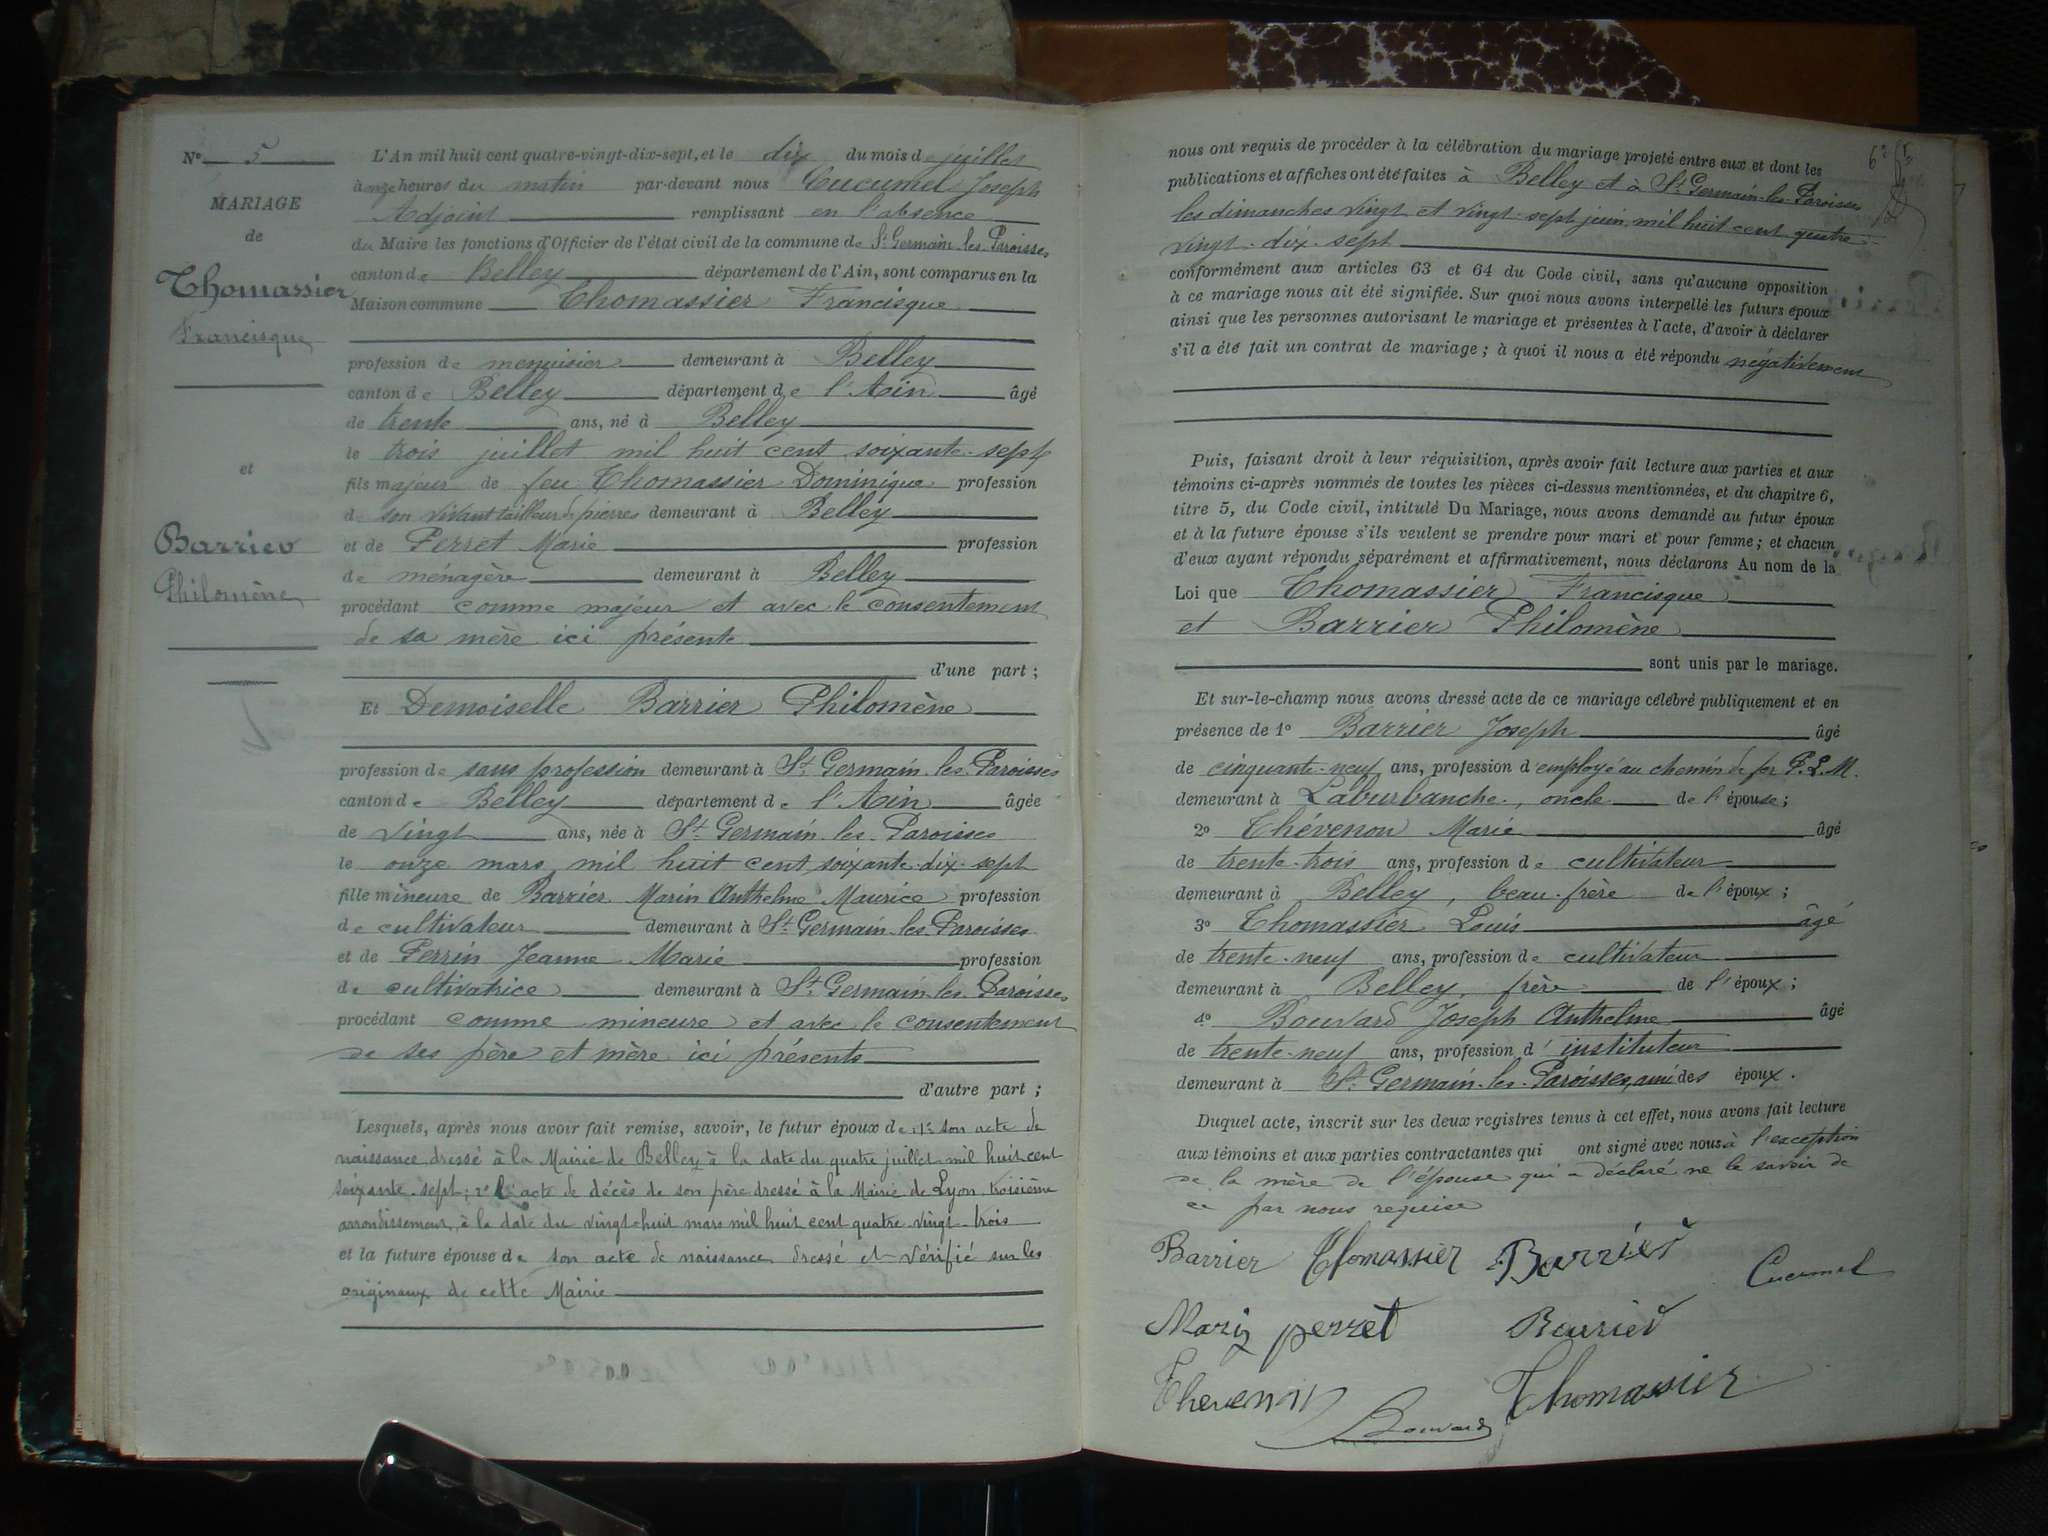 N° 5
MARIAGE
de
Thomassier
Francisque
et
Barrier
Philomène
L'An mil huit cent quatre-vingt-dix-sept, et le dix du mois de juillet
à onze heures du matin par-devant nous Cucumel Joseph
Adjoint remplissant en l'absence
du Maire les fonctions d'Officier de l'état civil de la commune de St Germain les Paroisses
canton de Belley département de l'Ain, sont comparus en la
Maison commune Thomassier Francisque
profession de menuisier demeurant à Belley
canton de Belley département de l'Ain âgé
de trente ans, né à Belley
le trois juillet mil huit cent soixante-sept
fils majeur de feu Thomassier Dominique profession
de son vivant tailleur de pierres demeurant à Belley
et de Perret Marie profession
de ménagère demeurant à Belley
procédant comme majeur et avec le consentement
de sa mère ici présente
d'une part ;
Et Demoiselle Barrier Philomène
profession de sans profession demeurant à St Germain-les-Paroisses
canton de Belley département de l'Ain âgée
de vingt ans, née à St Germain-les-Paroisses
le onze mars mil huit cent soixante-dix-sept
fille mineure de Barrier Marin Anthelme Maurice profession
de cultivateur demeurant à St Germain-les-Paroisses
et de Perrin Jeanne Marie profession
de cultivatrice demeurant à St Germain-les-Paroisses
procédant comme mineure et avec le consentement
de ses père et mère ici présents
d'autre part ;
Lesquels, après nous avoir fait remise, savoir, le futur époux de 1° son acte de
naissance dressé à la Mairie de Belley à la date du quatre juillet mil huit cent
soixante-sept ; 2° l'acte de décès de son père dressé à la Mairie de Lyon troisième
arrondissement, à la date du vingt-huit mars mil huit cent quatre-vingt-trois
et la future épouse de son acte de naissance dressé et vérifié sur les
originaux de cette Mairie
nous ont requis de procéder à la célébration du mariage projeté entre eux et dont les
publications et affiches ont été faites à Belley et à St Germain-les-Paroisses
les dimanches vingt et vingt-sept juin mil huit cent quatre
vingt-dix-sept
conformément aux articles 63 et 64 du Code civil, sans qu'aucune opposition
à ce mariage nous ait été signifiée. Sur quoi nous avons interpellé les futurs époux
ainsi que les personnes autorisant le mariage et présentes à l'acte, d'avoir à déclarer
s'il a été fait un contrat de mariage ; à quoi il nous a été répondu négativement
Puis, faisant droit à leur réquisition, après avoir fait lecture aux parties et aux
témoins ci-après nommés de toutes les pièces ci-dessus mentionnées, et du chapitre 6,
titre 5, du Code civil, intitulé Du Mariage, nous avons demandé au futur époux
et à la future épouse s'ils veulent se prendre pour mari et pour femme ; et chacun
d'eux ayant répondu séparément et affirmativement, nous déclarons Au nom de la
Loi que Thomassier Francisque
et Barrier Philomène
sont unis par le mariage.
Et sur-le-champ nous avons dressé acte de ce mariage célébré publiquement et en
présence de 1° Barrier Joseph âgé
de cinquante-neuf ans, profession d'employé au chemin de fer P.L.M.
demeurant à Laburbanche, oncle de l'épouse ;
2° Thévenon Marie âgé
de trente-trois ans, profession de cultivateur
demeurant à Belley, beau-frère de l'époux ;
3° Thomassier Louis âgé
de trente-neuf ans, profession de cultivateur
demeurant à Belley, frère de l'époux ;
4° Bouvard Joseph Anthelme âgé
de trente-neuf ans, profession d'instituteur
demeurant à St Germain-les-Paroisses, ami des époux.
Duquel acte, inscrit sur les deux registres tenus à cet effet, nous avons fait lecture
aux témoins et aux parties contractantes qui ont signé avec nous à l'exception
de la mère de l'épouse qui a déclaré ne le savoir de
ce par nous requise
Barrier Thomassier Barrier Cucumel
Marie perret Barrier
Thevenon Bouvard Thomassier